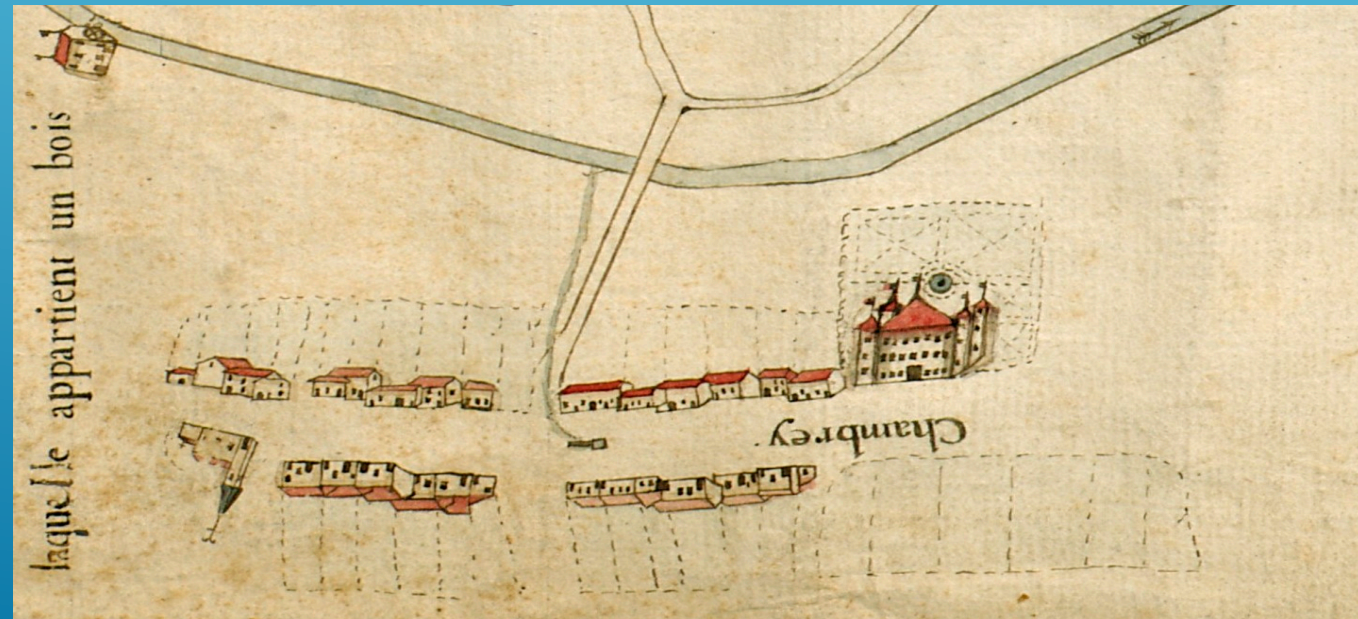 laquelle appartient un bois
Chambrey